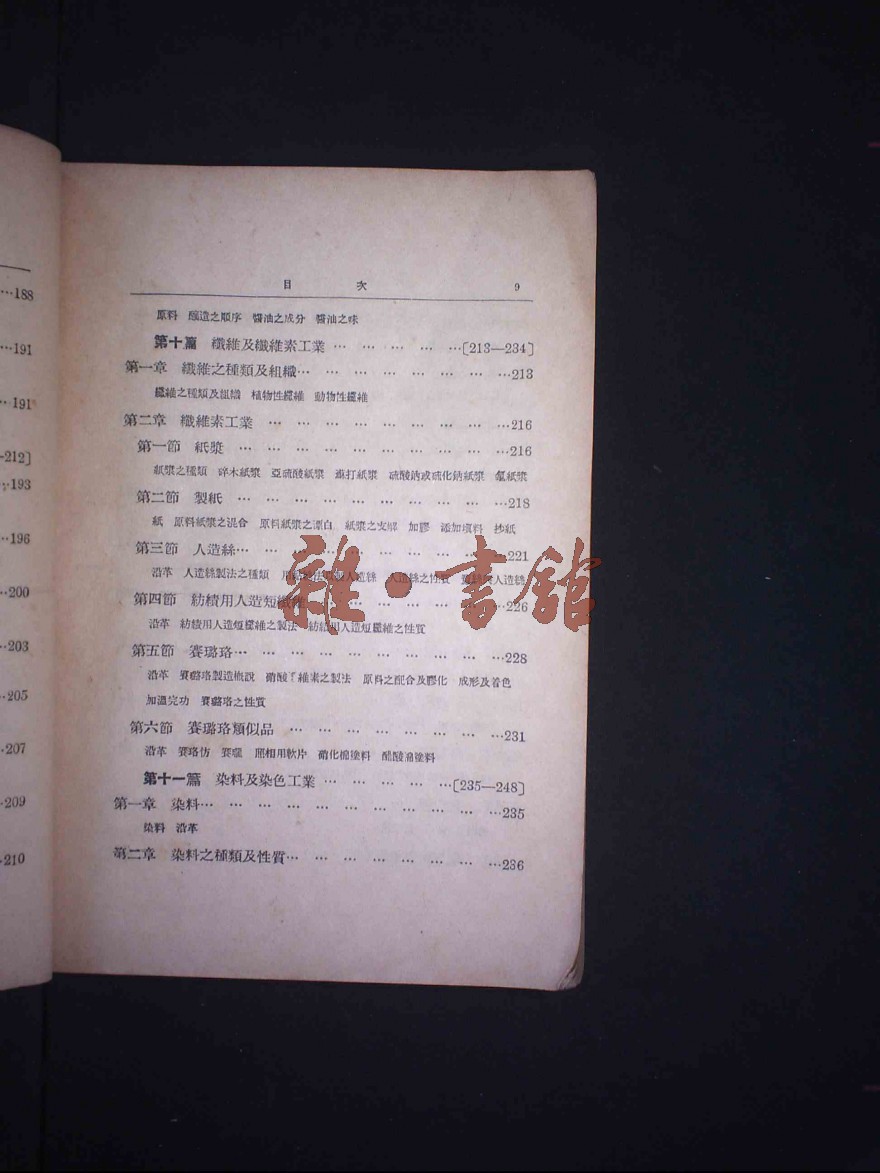 …188
…191
…191
—212]
…193
…196
…200
…203
…205
…207
…209
…210
目 次 9
原料 釀造之順序 醬油之成分 醬油之味
第十篇 纖維及纖維素工業 … … … … …[213—234]
第一章 纖維之種類及組織… … … … … … … …213
纖維之種類及組織 植物性纖維 動物性纖維
第二章 纖維素工業 … … … … … … … … …216
第一節 紙漿 … … … … … … … … … …216
紙漿之種類 碎木紙漿 亞硫酸紙漿 硫酸鈉或硫化鈉紙漿 氯紙漿
第二節 製紙 … … … … … … … … … …218
紙 原料紙漿之混合 原料紙漿之漂白 紙漿之支解 加膠 添加填料 抄紙
第三節 人造絲… … … … … … … … … …221
沿革 人造絲製法之種類 人造絲之性質
第四節 紡績用人造短纖維 … … … … … …226
沿革 紡績用人造短纖維之製法 紡績用人造短纖維之性質
第五節 賽璐珞… … … … … … … … … …228
沿革 賽璐珞製造概說 硝酸纖維素之製法 原料之配合及膠化 成形及着色
加溫完功 賽璐珞之性質
第六節 賽璐珞類似品 … … … … … … … …231
沿革 賽珞仿 賽璣 照相用軟片 硝化棉塗料 醋酸棉塗料
第十一篇 染料及染色工業 … … … … …[235—248]
第一章 染料… … … … … … … … … … …235
染料 沿革
第二章 染料之種類及性質… … … … … … … …236
雜·書館